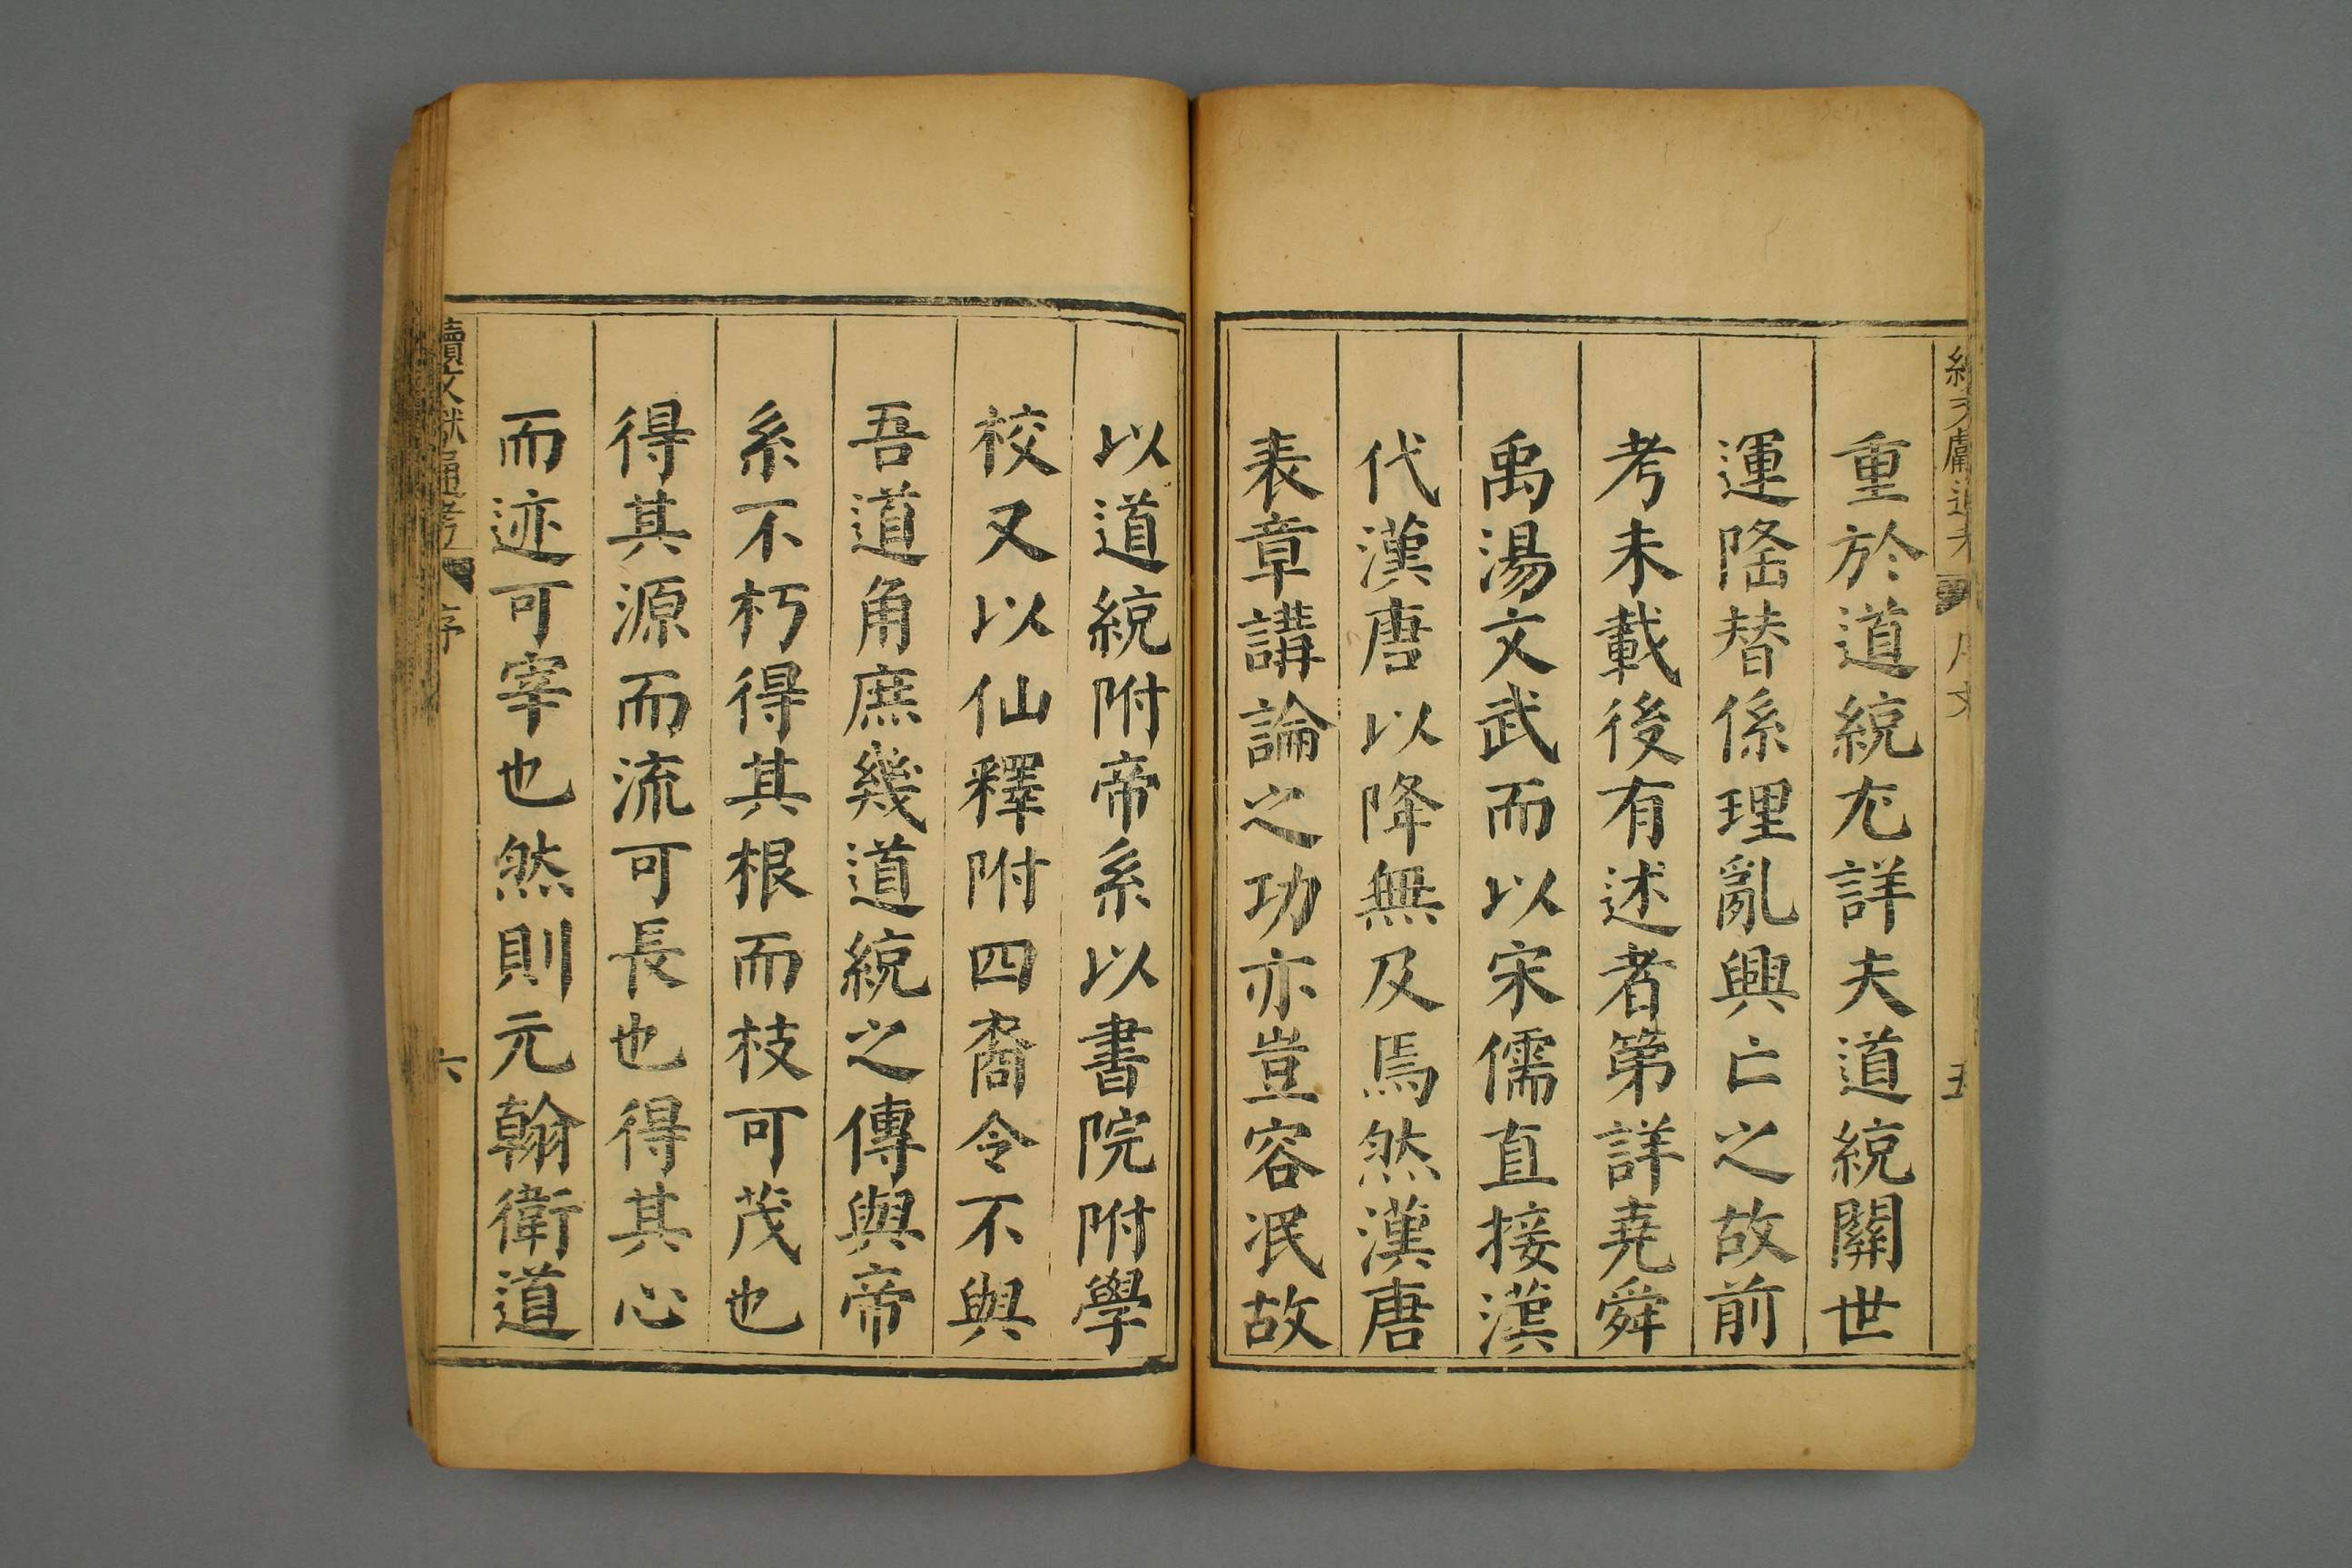 重於道統尤詳夫道統關世
運隆替係理亂興亡之故前
考未載後有述者第詳堯舜
禹湯文武而以宋儒直接漢
代漢唐以降無及焉然漢唐
表章講論之功亦豈容泯故
以道統附帝系以書院附學
校又以仙釋附四裔令不與
吾道角庶幾道統之傳與帝
系不朽得其根而枝可茂也
得其源而流可長也得其心
而迹可宰也然則元翰衛道
續文獻通考 序 六